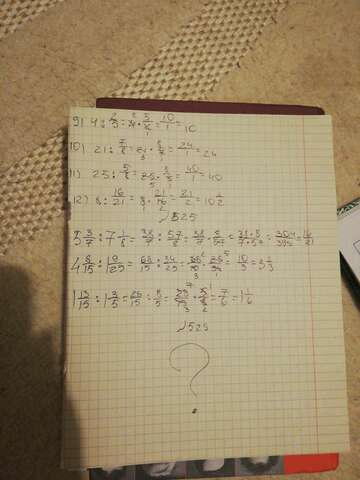 9) 4 : 2/5 = 4 · 5/2 = 10/1 = 10
10) 21 : 7/8 = 21 · 8/7 = 24/1 = 24
11) 25 : 5/8 = 25 · 8/5 = 40/1 = 40
12) 8 : 16/21 = 8 · 21/16 = 21/2 = 10 1/2
№525
5 3/7 : 7 1/8 = 38/7 : 57/8 = 38/7 · 8/57 = 38·8/7·57 = 304/399 = 16/21
4 8/15 : 1 9/25 = 68/15 : 34/25 = 68/15 · 25/34 = 10/3 = 3 1/3
1 13/15 : 1 3/5 = 28/15 : 8/5 = 28/15 · 5/8 = 7/6 = 1 1/6
№529
?